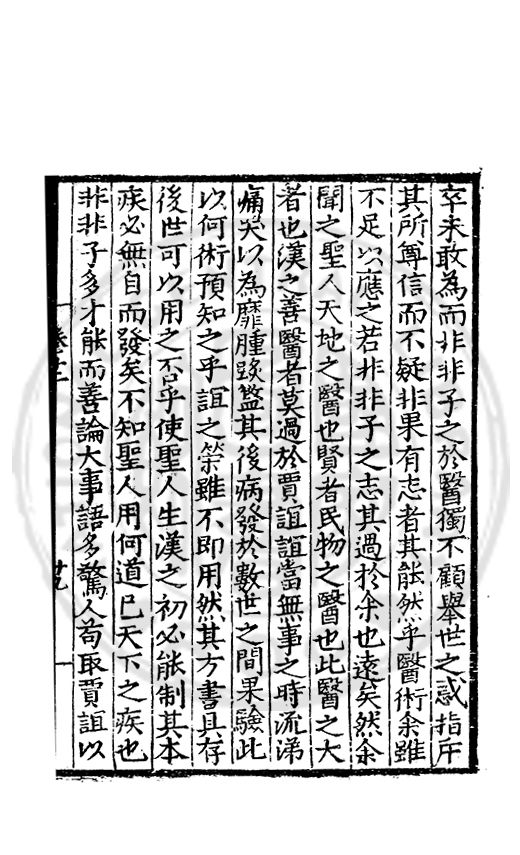 卒未敢為而非非子之於醫獨不顧舉世之惑指斥
其所尊信而不疑非果有志者其能然乎醫術余雖
不足以應之若非非子之志其過於余也遠矣然余
聞之聖人天地之醫也賢者民物之醫也此醫之大
者也漢之善醫者莫過於賈誼誼當無事之時流涕
痛哭以為靡腫蹊盭其後病發於數世之間果驗此
以何術預知之乎誼之策雖不即用然其方書具存
後世可以用之否乎使聖人生漢之初必能制其本
疾必無自而發矣不知聖人用何道已天下之疾也
非非子多才能而善論大事語多驚人苟取賈誼以
卷十二
廿九